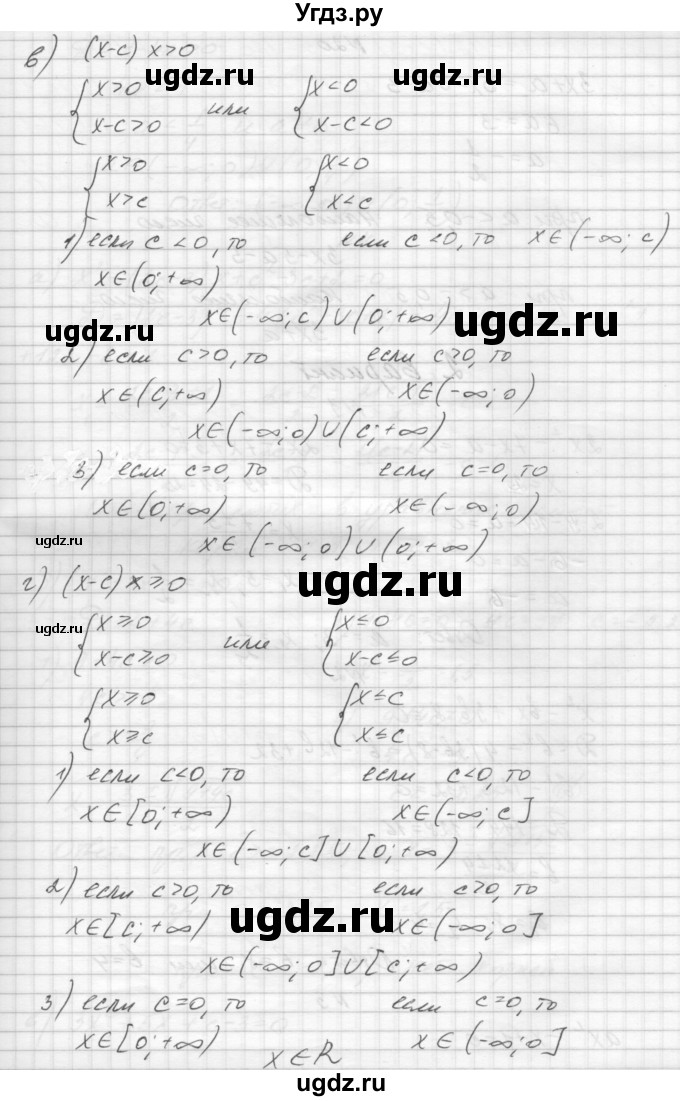 Угдз.ру
в) (x-c) x>0
ugdz.ru ugdz.ru
{x>0 или {x<0
x-c>0 x-c<0
{x>0 {x<0
x>c x<c
1) если c<0, то если c<0, то x∈(-∞; c)
x∈(0;+∞)
x∈(-∞;c)∪(0;+∞)
ugdz.ru ugdz.ru
2) если c>0, то если c>0, то
x∈(c;+∞) x∈(-∞;0)
x∈(-∞;0)∪(c;+∞)
3) если c=0, то если c=0, то
x∈(0;+∞) x∈(-∞;0)
ugdz.ru
x∈(-∞;0)∪(0;+∞)
г) (x-c)x⩾0
ugdz.ru
ugdz.ru
{x⩾0 или {x⩽0
x-c⩾0 x-c⩽0
{x⩾0 {x⩽c
x⩾c x⩽c
1) если c<0, то если c<0, то
x∈[0;+∞) x∈(-∞;c]
x∈(-∞;c]∪[0;+∞)
2) если c>0, то если c>0, то
x∈[c;+∞) x∈(-∞;0]
ugdz.ru
x∈(-∞;0]∪[c;+∞)
3) если c=0, то если c=0, то
x∈[0;+∞) x∈(-∞;0]
x∈R
ugdz.ru